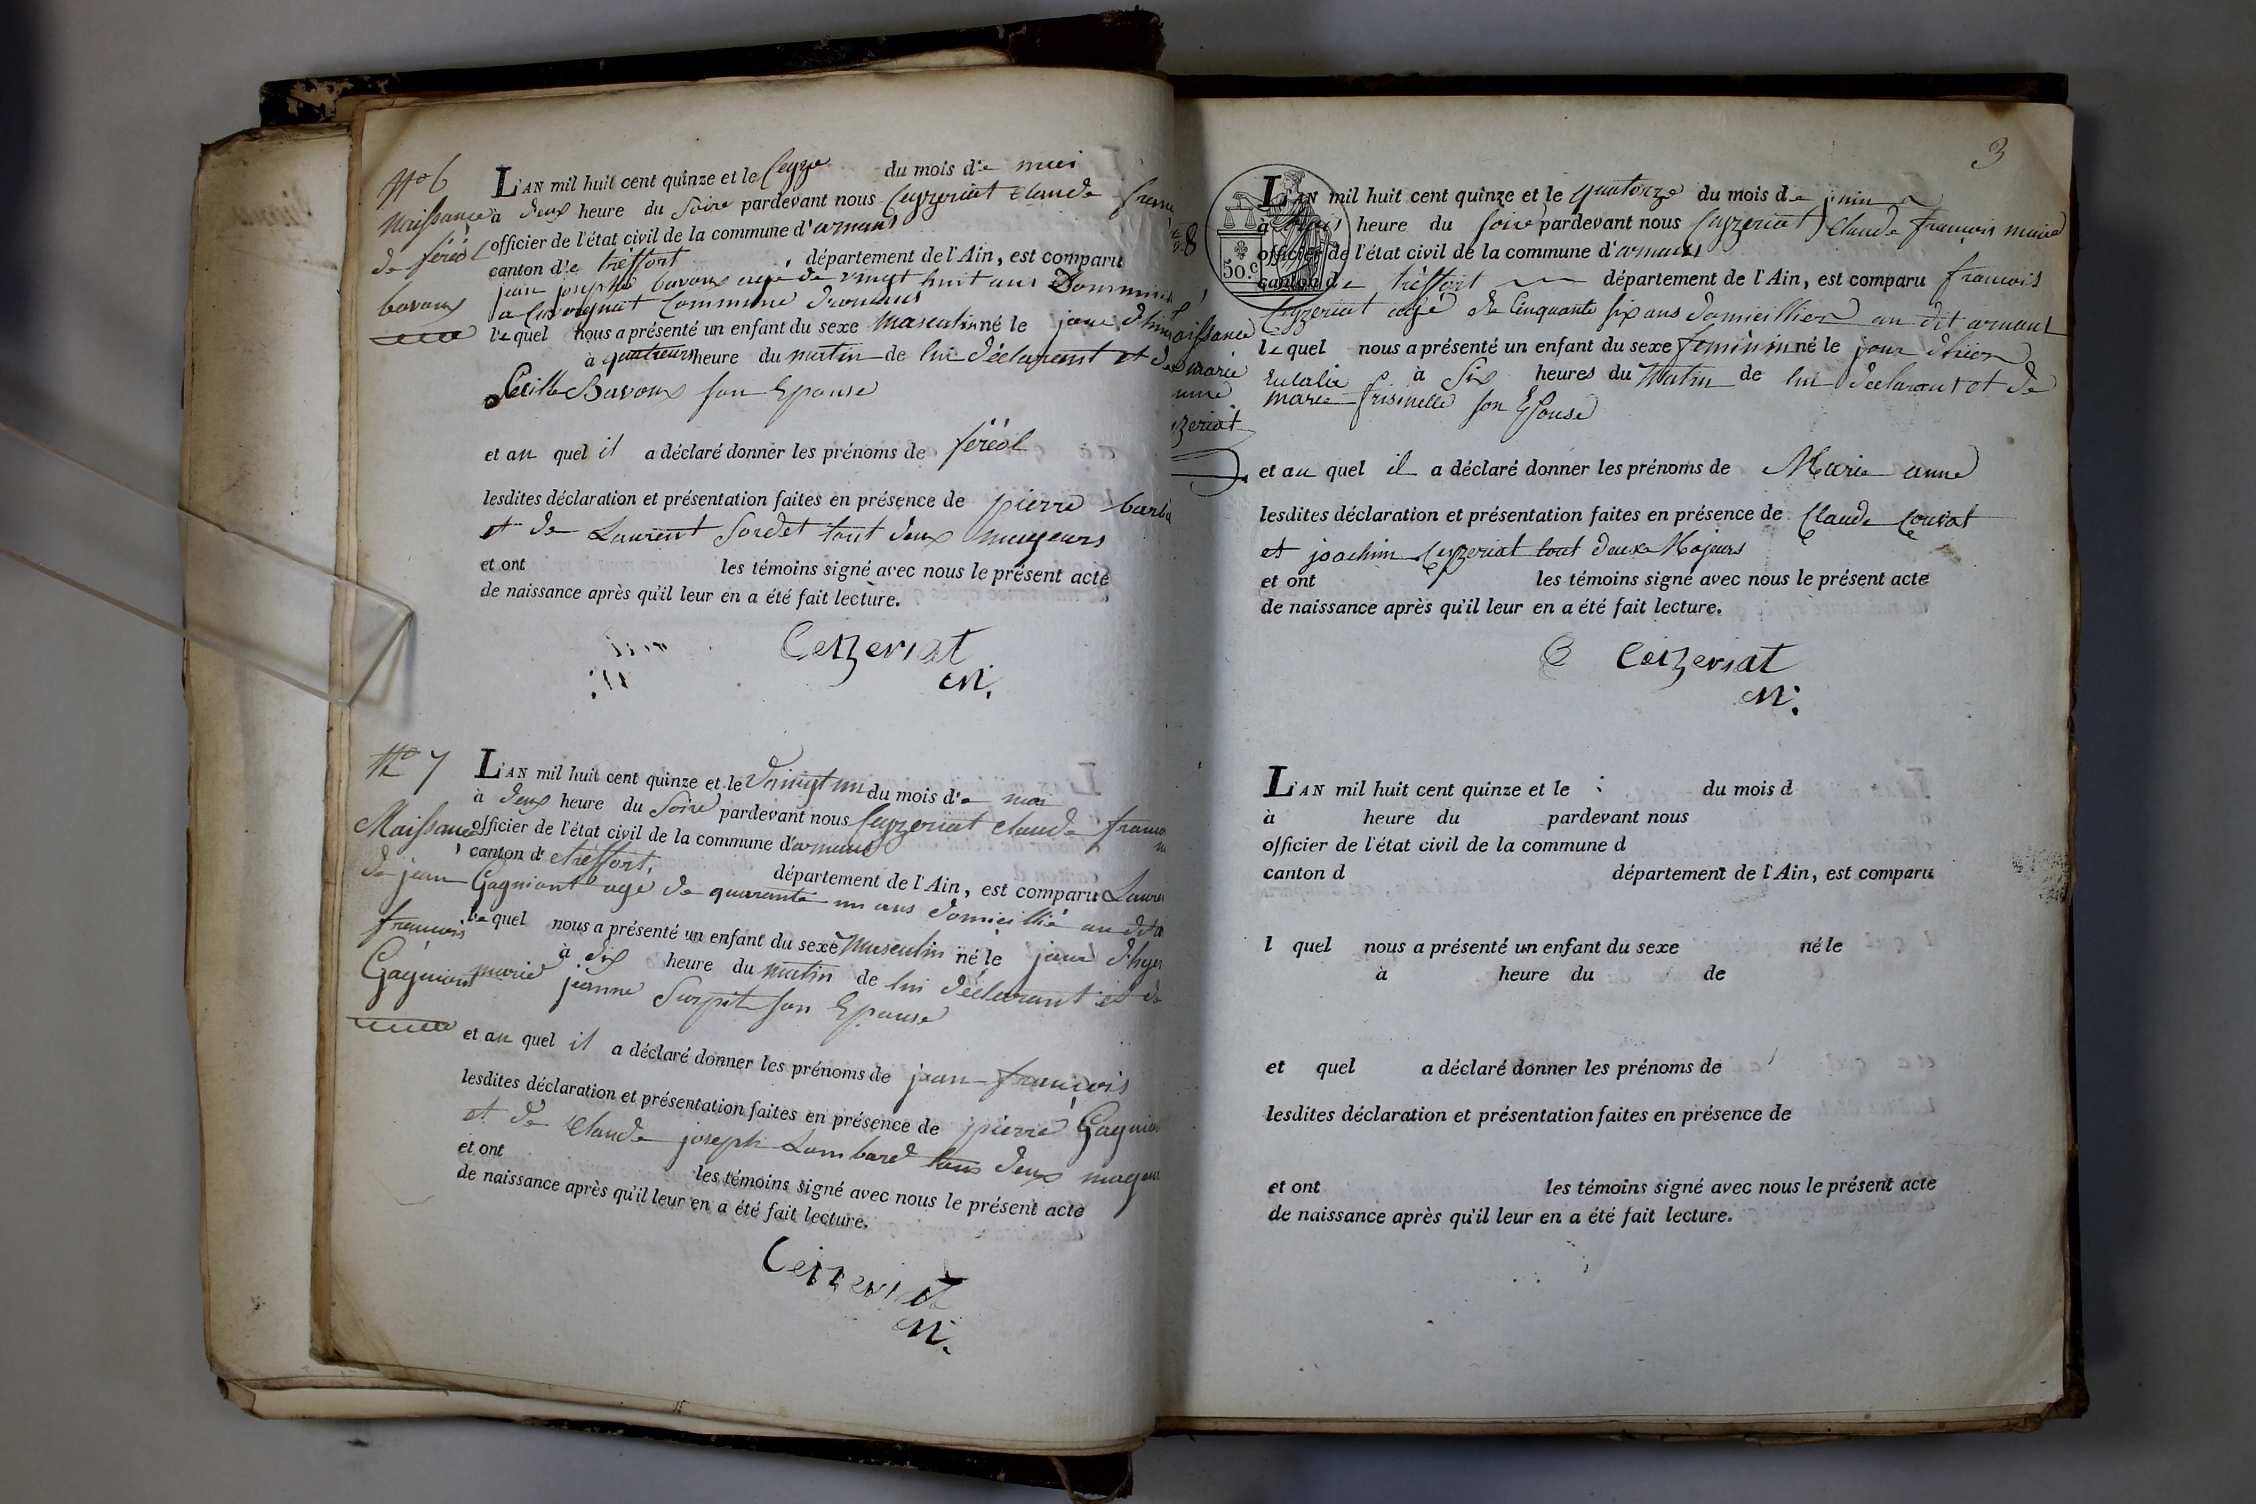 No 6
Naissance
de féréol
bavoux
L'AN mil huit cent quinze et le Seize du mois de mai
à deux heure du Soire pardevant nous Ceyzeriat Claude
officier de l'état civil de la commune d'arnans
canton de tréffort, département de l'Ain, est comparu
jean joseph bavoux age de vingt huit ans
a commune
le quel nous a présenté un enfant du sexe Masculin né le jour
à heure du matin de lui déclarent et de
Bavoux son Epouse
et au quel il a déclaré donner les prénoms de féréol
lesdites déclaration et présentation faites en présence de pierre
et de Laurent Sordet tout deux mageurs
et ont les témoins signé avec nous le présent acte
de naissance après qu'il leur en a été fait lecture.
Ceizeriat
M.
No 7
Naissance
de jean
francois
Gagniont
L'AN mil huit cent quinze et le vaingt un du mois de mai
à deux heure du Soire pardevant nous Ceyzeriat Claude
officier de l'état civil de la commune d'arnans
canton de tréffort, département de l'Ain, est comparu
Gagniont age de quarante un ans domicillié au dit
le quel nous a présenté un enfant du sexe Masculin né le jour d'hyer
à six heure du matin de lui déclarant et de
marie jeanne son Epouse
et au quel il a déclaré donner les prénoms de jean francois
lesdites déclaration et présentation faites en présence de pierre
et de Claude joseph Lombard tous deux
et ont les témoins signé avec nous le présent acte
de naissance après qu'il leur en a été fait lecture.
Ceizeriat
M.
3
8
50.c
L'AN mil huit cent quinze et le quatorze du mois de juin
à trois heure du soire pardevant nous Ceyzeriat Claude françois maire
officier de l'état civil de la commune d'arnans
canton de tréffort département de l'Ain, est comparu francois
Ceyzeriat agé de Cinquante six ans domicillier au dit arnant
le quel nous a présenté un enfant du sexe feminin né le jour d'hier
Eulalie à Six heures du Matin de lui déclarant et de
marie son Epouse
et au quel il a déclaré donner les prénoms de Marie anne
lesdites déclaration et présentation faites en présence de Claude Convat
et joachim Ceyzeriat tout deux Majeurs
et ont les témoins signé avec nous le présent acte
de naissance après qu'il leur en a été fait lecture.
Ceizeriat
M.
L'AN mil huit cent quinze et le du mois d
à heure du pardevant nous
officier de l'état civil de la commune d
canton d département de l'Ain, est comparu
l quel nous a présenté un enfant du sexe né le
à heure du de
et quel a déclaré donner les prénoms de
lesdites déclaration et présentation faites en présence de
et ont les témoins signé avec nous le présent acte
de naissance après qu'il leur en a été fait lecture.